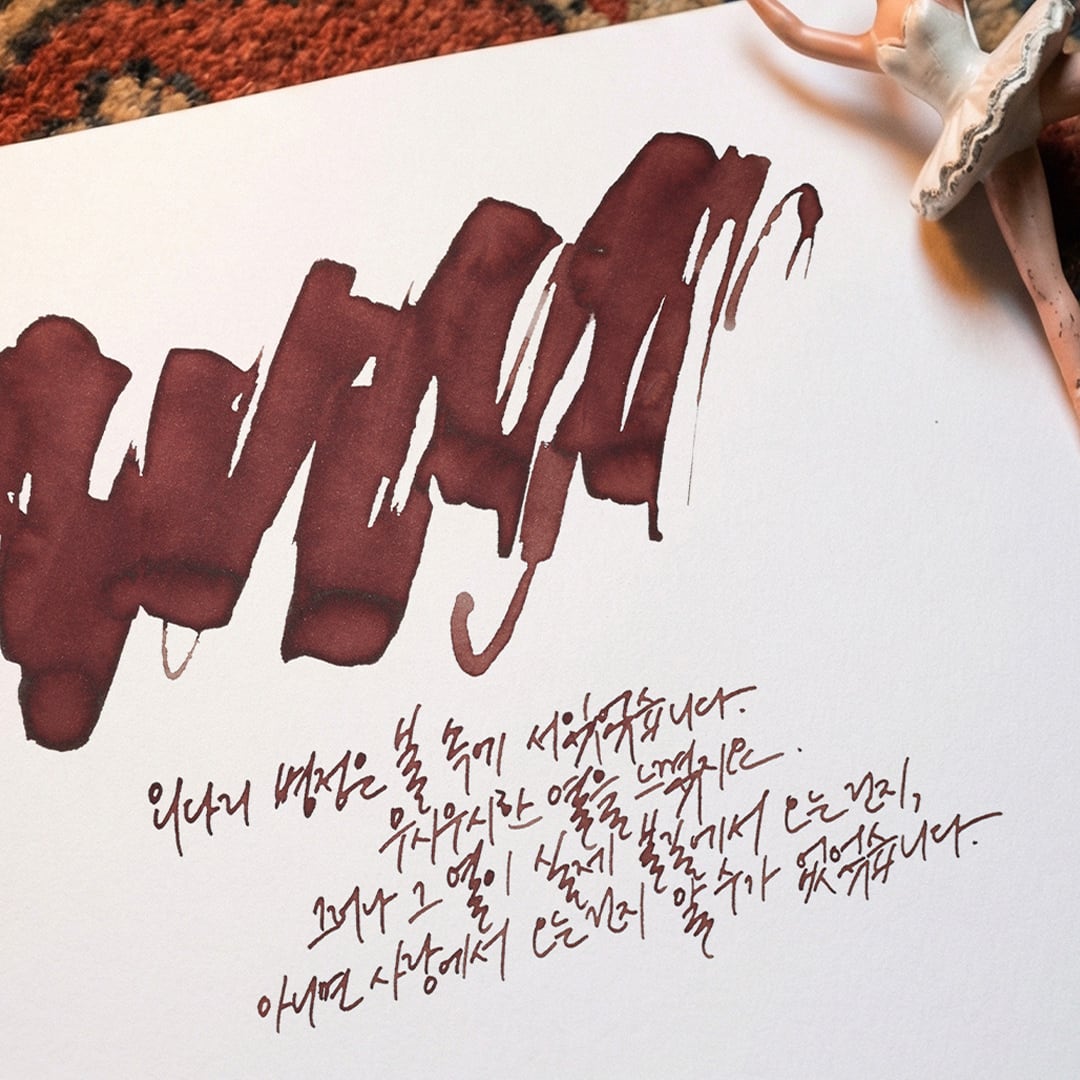 외다리 병정은 불 속에 서있었습니다.
무시무시한 열을 느꼈지요.
그러나 그 열이 실제 불길에서 오는건지,
아니면 사랑에서 오는건지 알 수가 없었습니다.